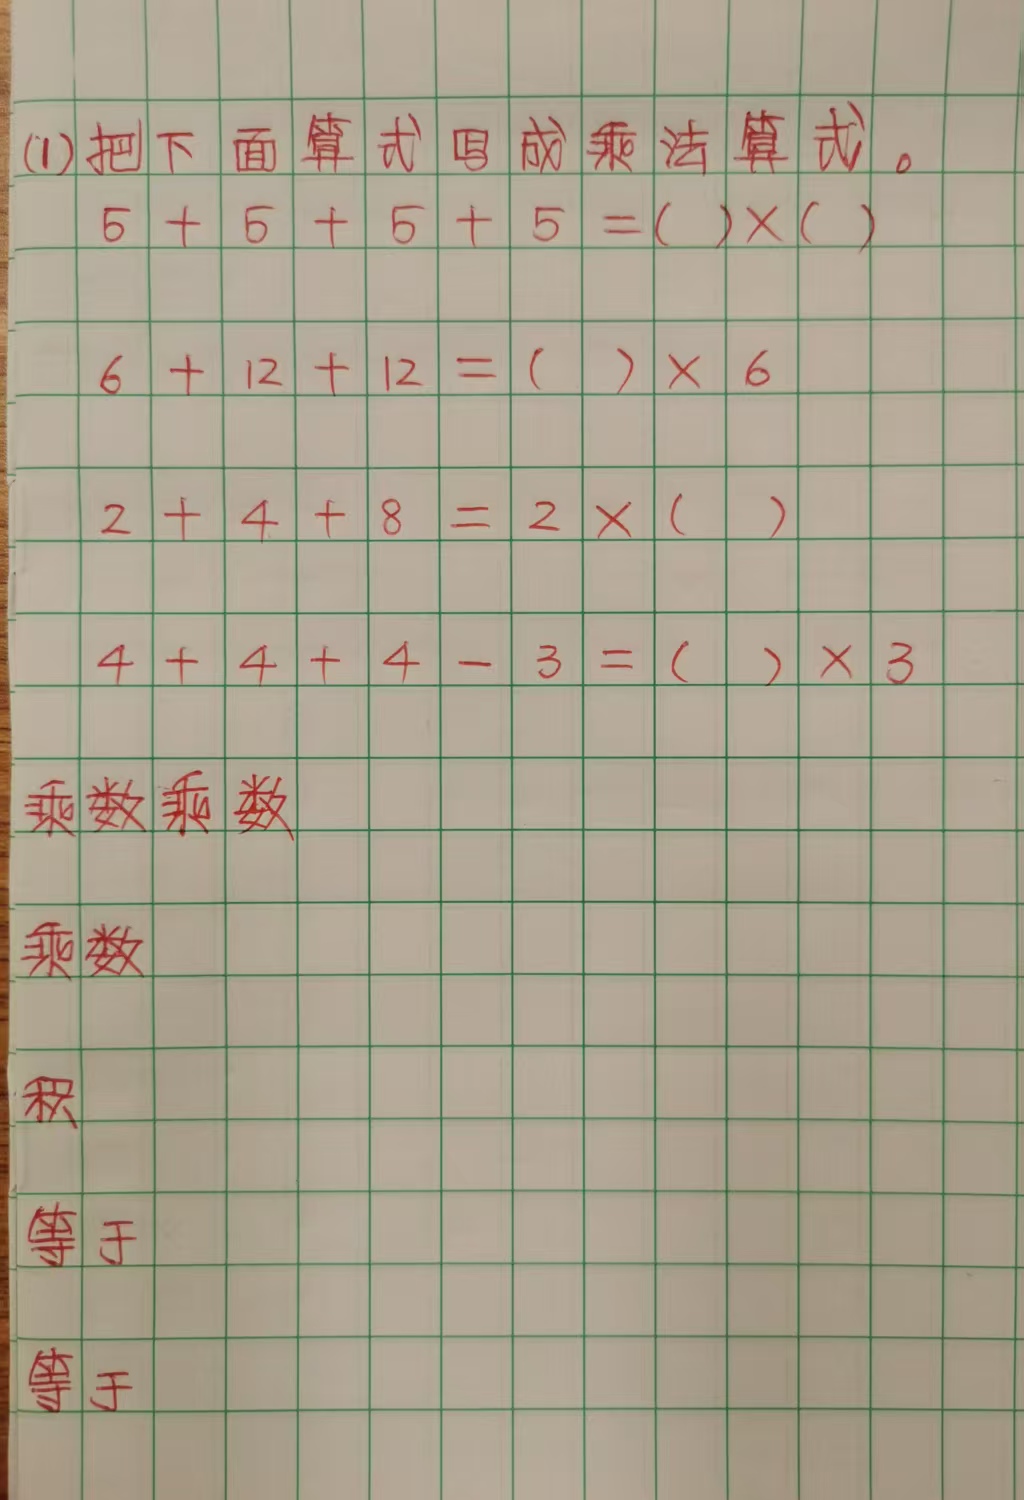 (1)把下面算式写成乘法算式。
5+5+5+5=( )×( )
6+12+12=( )×6
2+4+8=2×( )
4+4+4-3=( )×3
乘数乘数
乘数
积
等于
等于